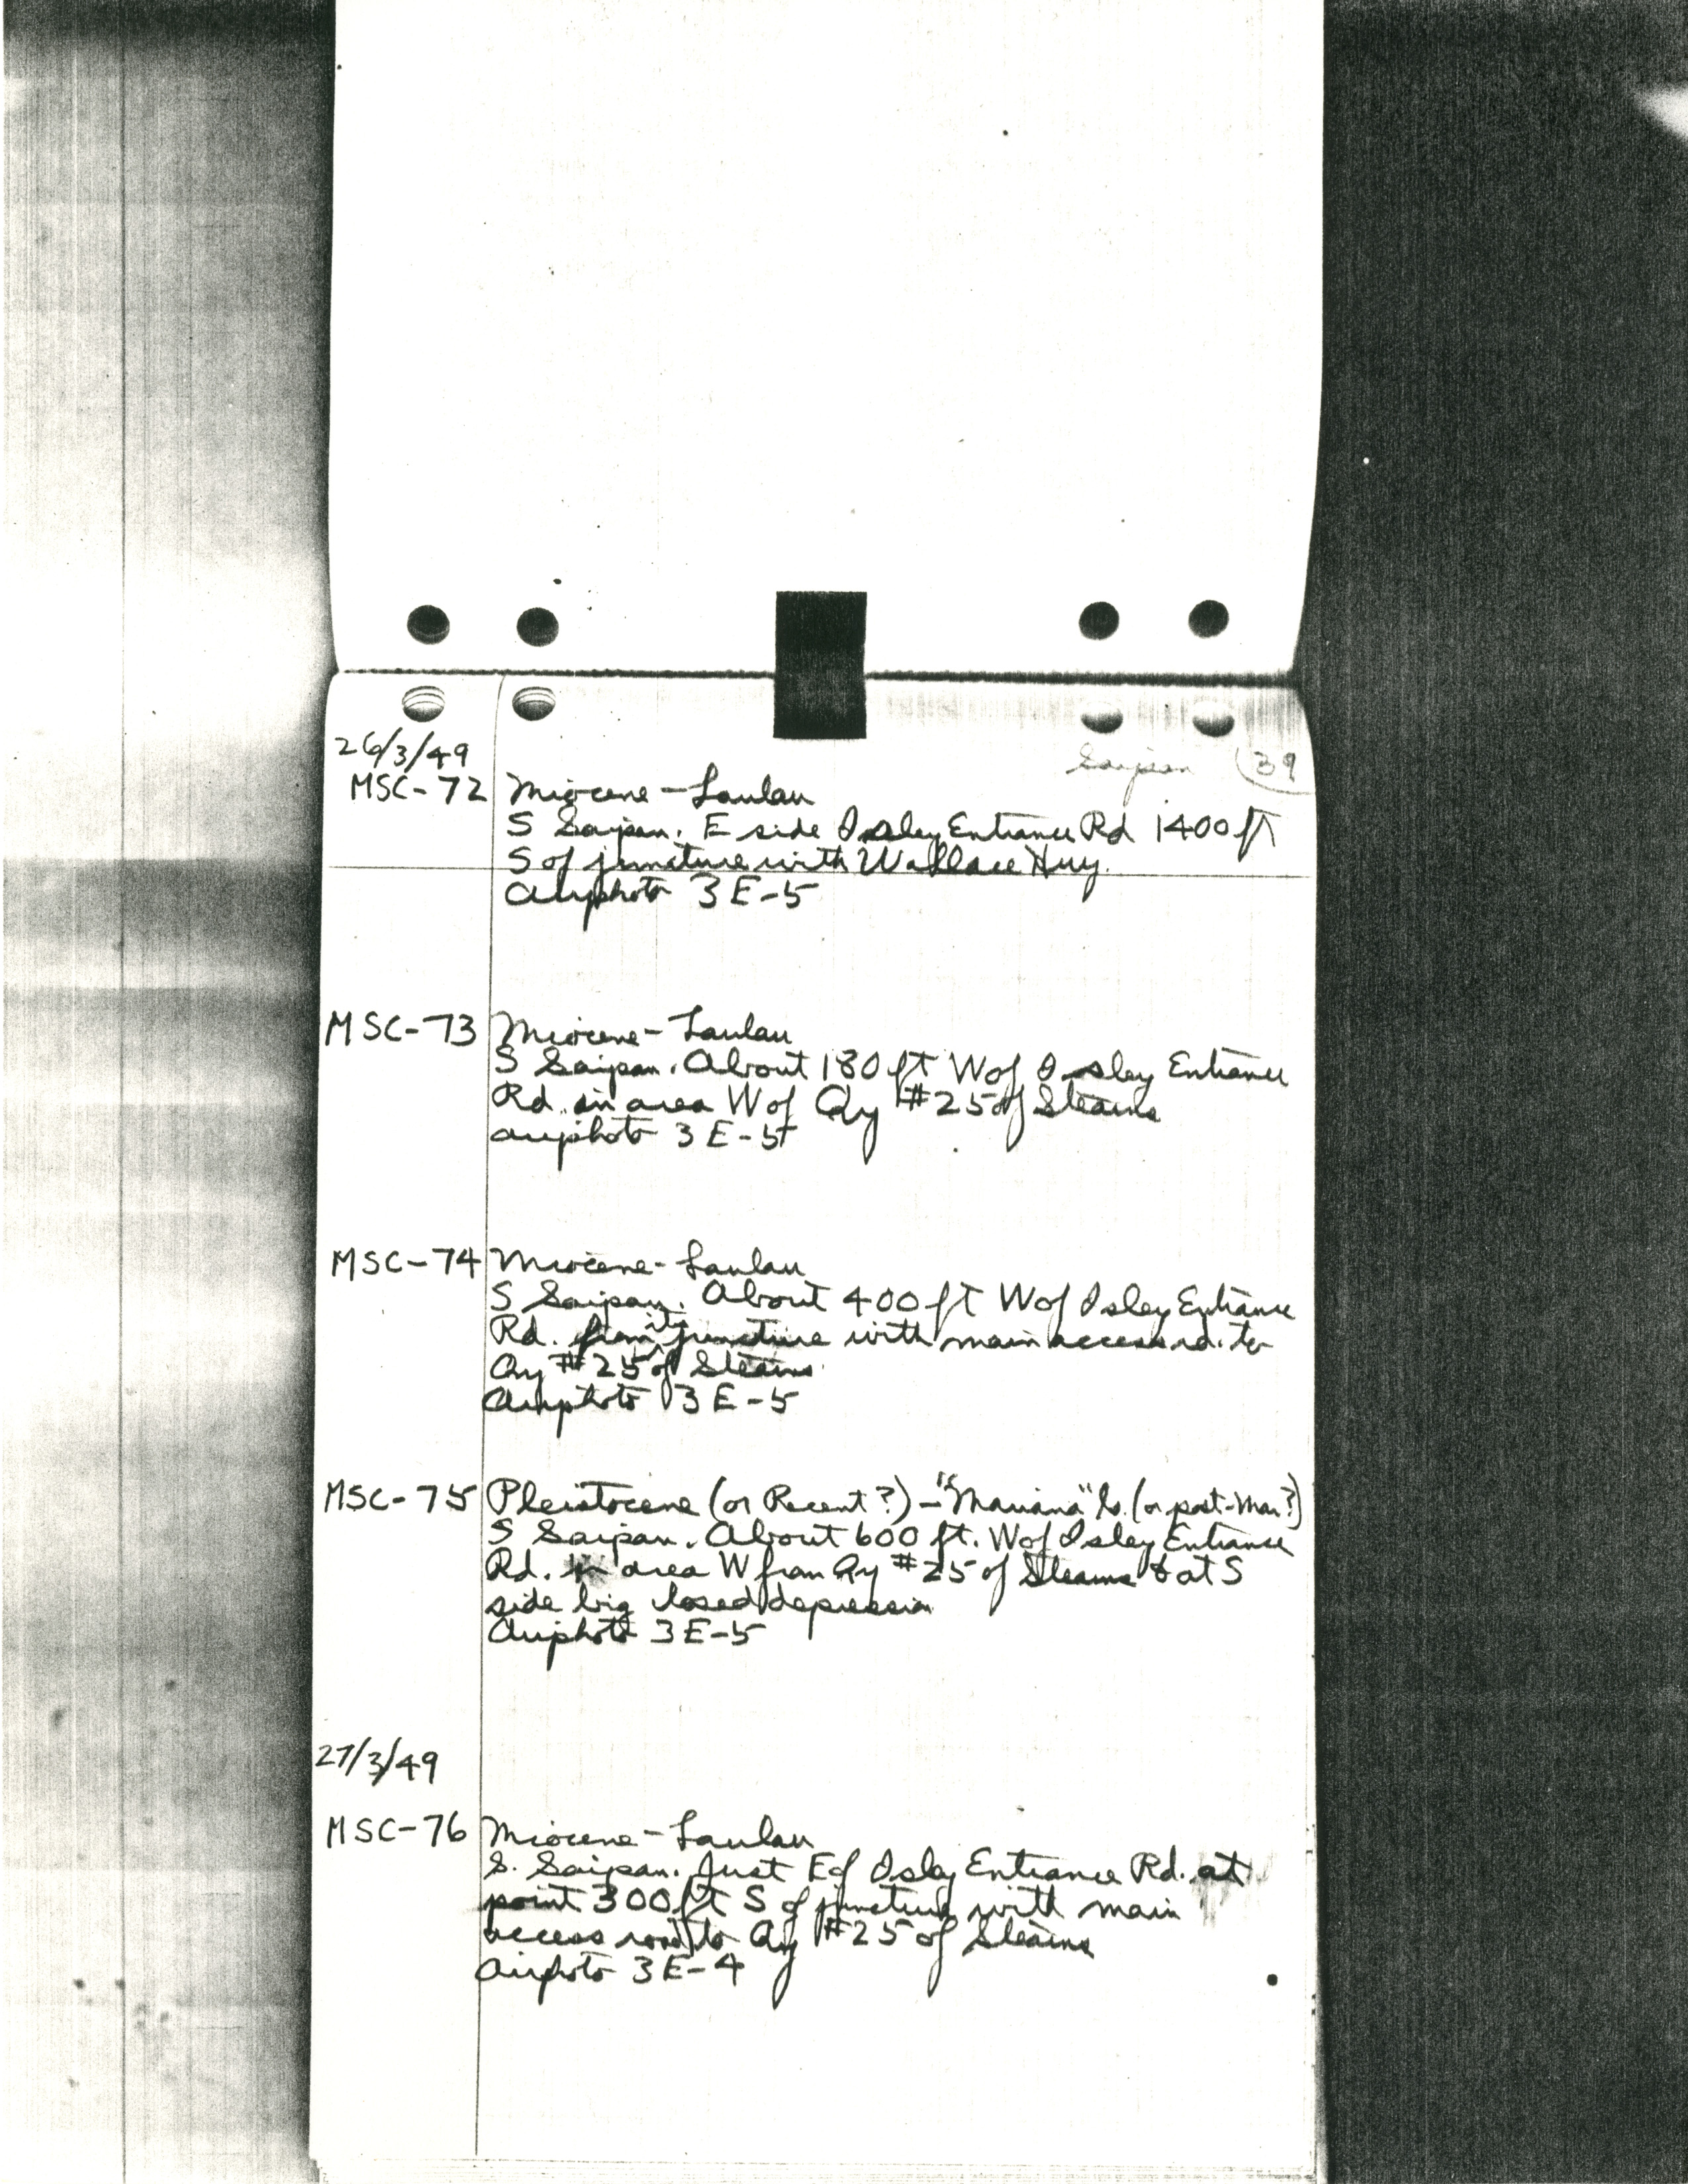 Saipan 39
26/3/49
MSC-72 Miocene - Laulau
S Saipan. E side Isley Entrance Rd 1400 ft
S of juncture with Wallace Hwy.
Airphoto 3E-5
MSC-73 Miocene - Laulau
S Saipan. About 180 ft W of Isley Entrance
Rd. in area W of Qy #25 of Stearns
airphoto 3E-5
MSC-74 Miocene - Laulau
S Saipan. About 400 ft W of Isley Entrance
Rd. from its juncture with main access rd. to
Qy #25 of Stearns
Airphoto 3E-5
MSC-75 Pleistocene (or Recent?) - "Mariana" ls. (or post-Mar.?)
S Saipan. About 600 ft. W of Isley Entrance
Rd. in area W from Qy #25 of Stearns & at S
side big closed depression
Airphoto 3E-5
27/3/49
MSC-76 Miocene - Laulau
S. Saipan. Just E of Isley Entrance Rd. at
point 300 ft S of juncture with main
access road to Qy #25 of Stearns
Airphoto 3E-4